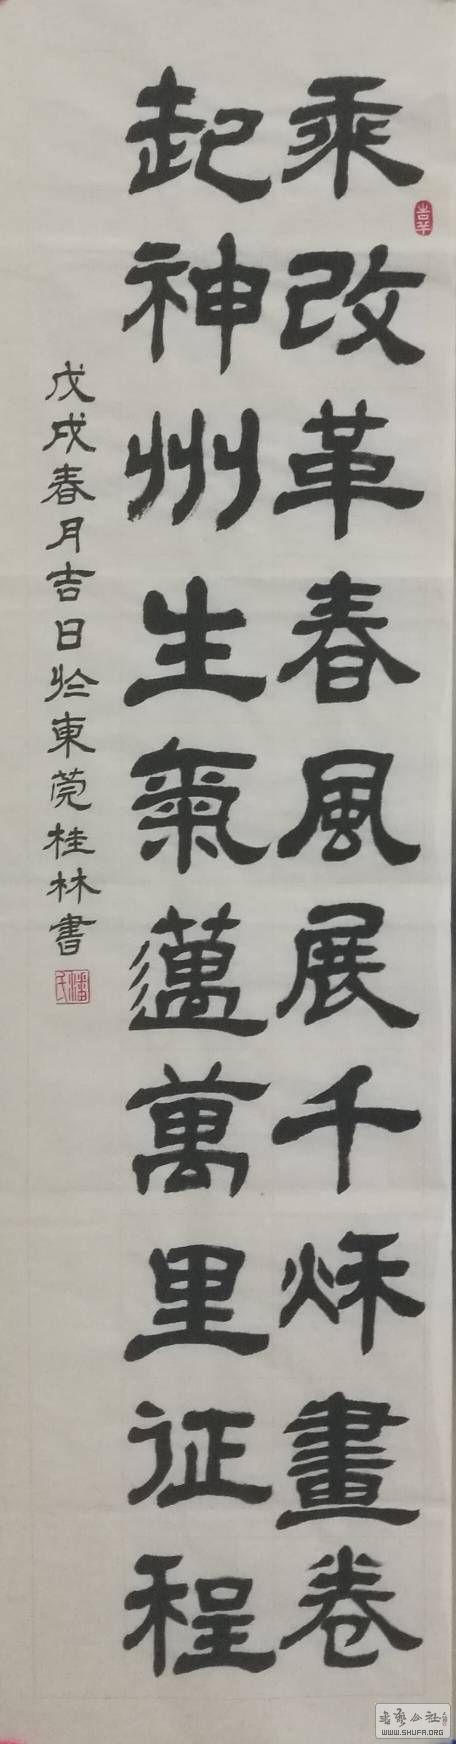 乘改革春風展千烁畫卷
起神州生氣邁萬里征程
戊戌春月吉日於東莞桂林書
潘氏
吉羊
书艺公社
WWW.SHUFA.ORG